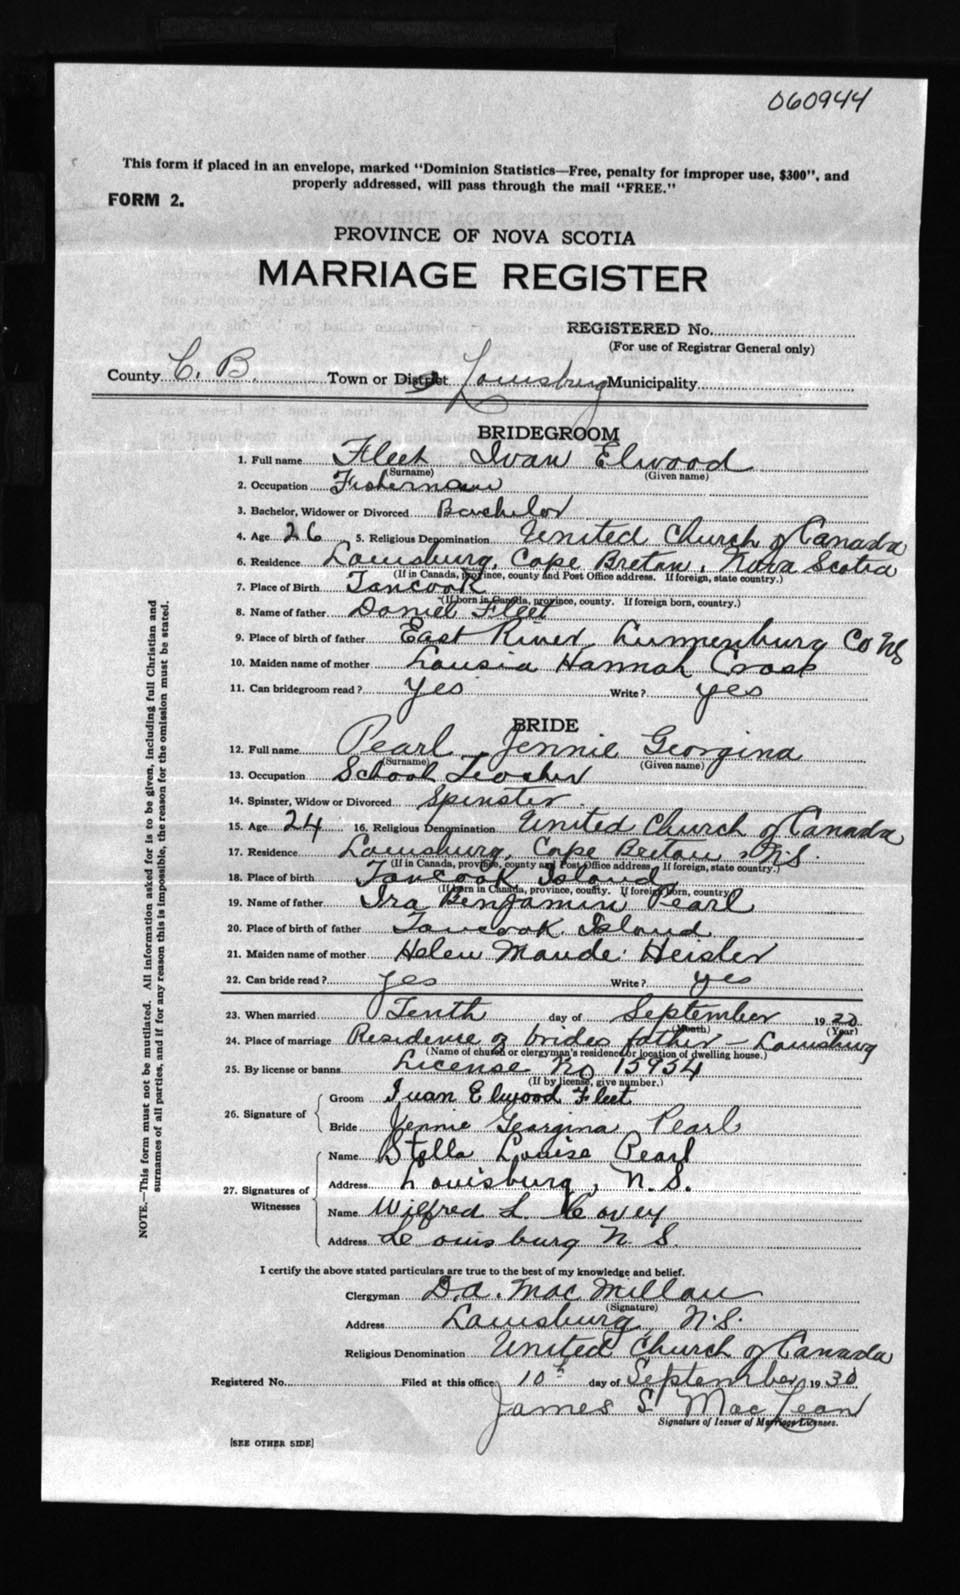 060944
This form if placed in an envelope, marked "Dominion Statistics—Free, penalty for improper use, $300", and
properly addressed, will pass through the mail "FREE."
FORM 2.
PROVINCE OF NOVA SCOTIA
MARRIAGE REGISTER
REGISTERED No.
(For use of Registrar General only)
County C. B. Town or District Louisburg Municipality
BRIDEGROOM
1. Full name Fleet Ivan Elwood
(Surname) (Given name)
2. Occupation Fisherman
3. Bachelor, Widower or Divorced Bachelor
4. Age 26 5. Religious Denomination United Church of Canada
6. Residence Louisburg, Cape Breton, Nova Scotia
(If in Canada, province, county and Post Office address. If foreign, state country.)
7. Place of Birth Tancook
(If born in Canada, province, county. If foreign born, country.)
8. Name of father Daniel Fleet
9. Place of birth of father East River Lunnenburg Co NS
10. Maiden name of mother Lousia Hannah Cross
11. Can bridegroom read? yes Write? yes
BRIDE
12. Full name Pearl Jennie Georgina
(Surname) (Given name)
13. Occupation School Teacher
14. Spinster, Widow or Divorced Spinster
15. Age 24 16. Religious Denomination United Church of Canada
17. Residence Louisburg, Cape Breton, N.S.
(If in Canada, province, county and Post Office address. If foreign, state country.)
18. Place of birth Tancook Island
(If born in Canada, province, county. If foreign born, country)
19. Name of father Ira Benjamin Pearl
20. Place of birth of father Tancook Island
21. Maiden name of mother Helen Maude Heisler
22. Can bride read? yes Write? yes
23. When married Tenth day of September 1930
(Month) (Year)
24. Place of marriage Residence of brides father – Louisburg
(Name of church or clergyman's residence or location of dwelling house.)
25. By license or banns License No 15954
(If by license, give number.)
26. Signature of
Groom Ivan Elwood Fleet
Bride Jennie Georgina Pearl
27. Signatures of Witnesses
Name Stella Louise Pearl
Address Louisburg, N.S.
Name Wilfred L. Covey
Address Louisburg N.S.
I certify the above stated particulars are true to the best of my knowledge and belief.
Clergyman D.A. MacMillan
(Signature)
Address Louisburg, N.S.
Religious Denomination United Church of Canada
Registered No. Filed at this office 10th day of September 1930
James S MacLean
Signature of Issuer of Marriage Licenses.
[SEE OTHER SIDE]
NOTE.—This form must not be mutilated. All information asked for is to be given, including full Christian and
surnames of all parties, and if for any reason this is impossible, the reason for the omission must be stated.